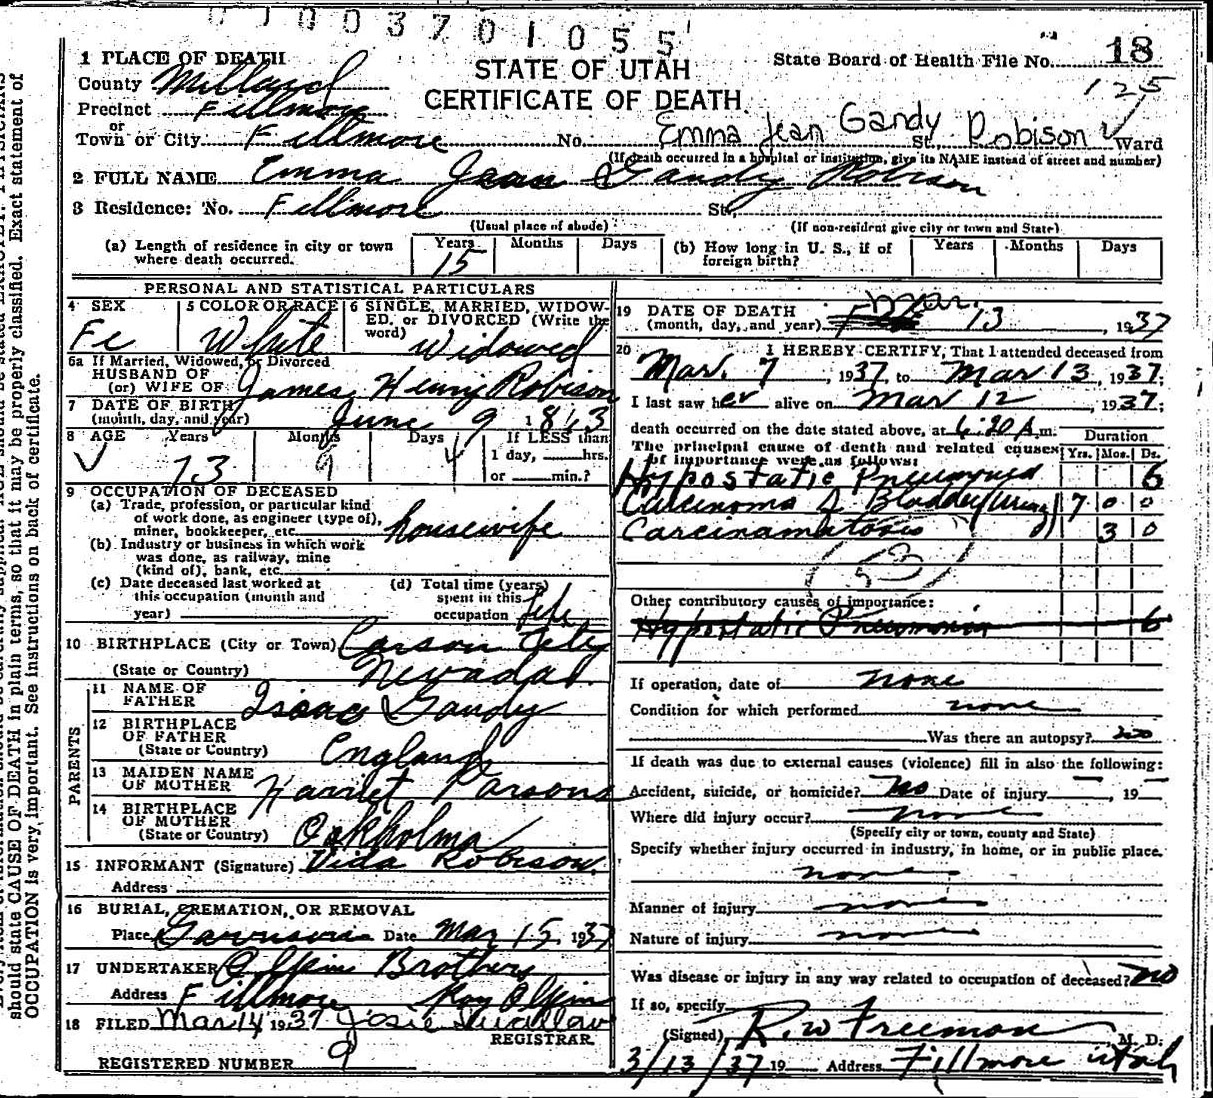 01003701055
1 PLACE OF DEATH
STATE OF UTAH
State Board of Health File No. 18
County Millard
CERTIFICATE OF DEATH
125
Precinct Fillmore
or
Town or City Fillmore No. Emma Jean Gandy St. Robison Ward
(If death occurred in a hospital or institution, give its NAME instead of street and number)
2 FULL NAME Emma Jean Gandy Robison
3 Residence: No. Fillmore St.
(Usual place of abode) (If non-resident give city or town and State)
(a) Length of residence in city or town where death occurred. Years 15 Months Days
(b) How long in U. S., if of foreign birth? Years Months Days
PERSONAL AND STATISTICAL PARTICULARS
4 SEX Fe
5 COLOR OR RACE White
6 SINGLE, MARRIED, WIDOWED, or DIVORCED (Write the word) Widowed
6a If Married, Widowed, or Divorced
HUSBAND OF
(or) WIFE OF James Henry Robison
7 DATE OF BIRTH
(month, day, and year) June 9 1863
8 AGE Years 73 Months 9 Days 4 If LESS than
1 day, hrs.
or min.?
9 OCCUPATION OF DECEASED
(a) Trade, profession, or particular kind
of work done, as engineer (type of),
miner, bookkeeper, etc. housewife
(b) Industry or business in which work
was done, as railway, mine
(kind of), bank, etc.
(c) Date deceased last worked at
this occupation (month and
year)
(d) Total time (years)
spent in this
occupation life
10 BIRTHPLACE (City or Town) Carson City
(State or Country) Nevada
PARENTS
11 NAME OF
FATHER Isaac Gandy
12 BIRTHPLACE
OF FATHER
(State or Country) England
13 MAIDEN NAME
OF MOTHER Harriet Parsons
14 BIRTHPLACE
OF MOTHER
(State or Country) Oakholma
15 INFORMANT (Signature) Vida Robison.
Address
16 BURIAL, CREMATION, OR REMOVAL
Place Garrison Date Mar 15 1937
17 UNDERTAKER Olpin Brothers
Address Fillmore Roy Olpin
18 FILED Mar 14 1937 Josie
REGISTRAR
REGISTERED NUMBER 9
19 DATE OF DEATH
(month, day, and year) Mar. 13, 1937
20 I HEREBY CERTIFY, That I attended deceased from
Mar. 7, 1937, to Mar 13, 1937;
I last saw her alive on Mar 12, 1937;
death occurred on the date stated above, at 6:20 A.m.
The principal cause of death and related causes
of importance were as follows:
Duration
Yrs. Mos. Ds.
Hypostatic Pneumonia 6
Carcinoma of Bladder (Urinary) 7 0 0
Carcinamatosis 3 0
53
Other contributory causes of importance:
Hypostatic Pneumonia 6
If operation, date of none
Condition for which performed none
Was there an autopsy? no
If death was due to external causes (violence) fill in also the following:
Accident, suicide, or homicide? No Date of injury —, 19—
Where did injury occur? none
(Specify city or town, county and State)
Specify whether injury occurred in industry, in home, or in public place.
none
Manner of injury none
Nature of injury none
Was disease or injury in any way related to occupation of deceased? no
If so, specify
(Signed) R. W Freeman M. D.
3/13/37 19 Address Fillmore Utah
should state CAUSE OF DEATH in plain terms, so that it may be properly classified. Exact statement of
OCCUPATION is very important. See instructions on back of certificate.